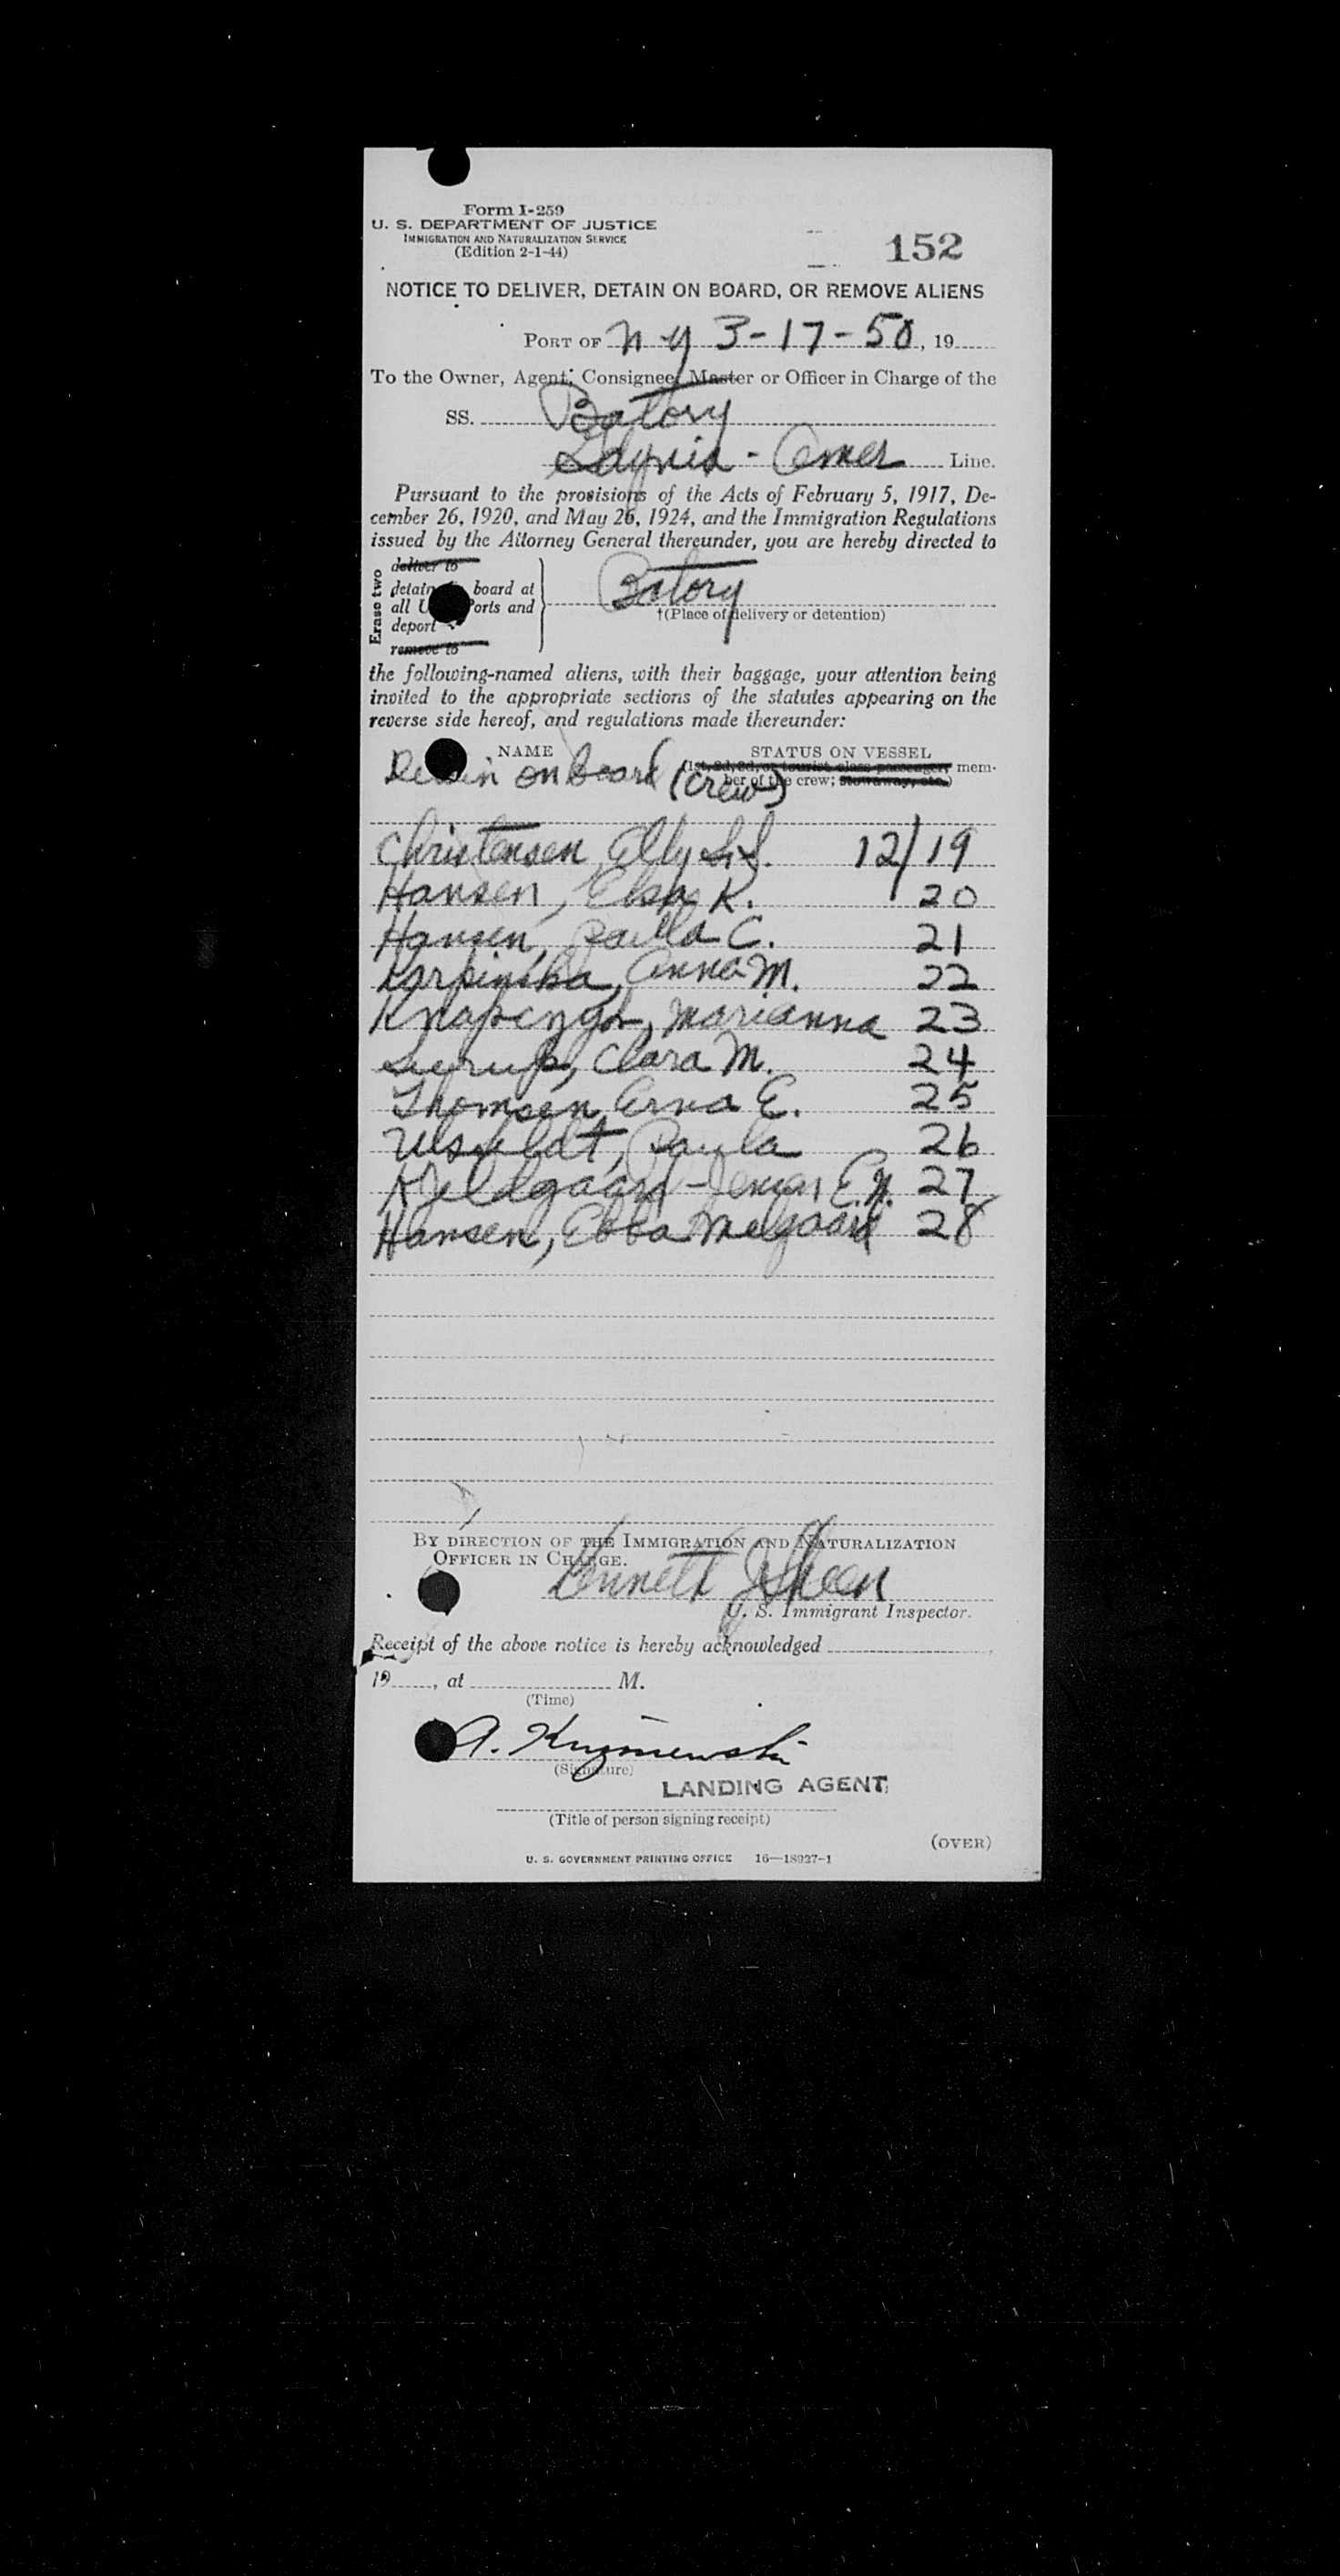 Form I-259
U. S. DEPARTMENT OF JUSTICE
IMMIGRATION AND NATURALIZATION SERVICE
(Edition 2-1-44)
152
NOTICE TO DELIVER, DETAIN ON BOARD, OR REMOVE ALIENS
PORT OF N Y 3-17-50, 19
To the Owner, Agent, Consignee, Master or Officer in Charge of the
SS. Batory
Gdynia - Amer Line.
Pursuant to the provisions of the Acts of February 5, 1917, De-
cember 26, 1920, and May 26, 1924, and the Immigration Regulations
issued by the Attorney General thereunder, you are hereby directed to
Erase two
deliver to
detain board at
all U Ports and
deport
remove to
Batory
†(Place of delivery or detention)
the following-named aliens, with their baggage, your attention being
invited to the appropriate sections of the statutes appearing on the
reverse side hereof, and regulations made thereunder:
NAME STATUS ON VESSEL
(1st, 2d, 3d, or tourist class passenger; mem-
ber of the crew; stowaway, etc.)
Detain on board (Crew)
Christensen, Elly S. 12/19
Hansen, Elsa K. 20
Hansen, Paula C. 21
Karpinska, Anna M. 22
Marianna 23
Clara M. 24
Thomsen, Erna E. 25
Paula 26
Kjeldgaard-Jensen, E.N. 27
Hansen, Ebba Melgaard 28
BY DIRECTION OF THE IMMIGRATION AND NATURALIZATION
OFFICER IN CHARGE.
Kenneth J Skeen
U. S. Immigrant Inspector.
Receipt of the above notice is hereby acknowledged
19, at M.
(Time)
A. Kuzniewski
(Signature)
LANDING AGENT
(Title of person signing receipt)
(OVER)
U. S. GOVERNMENT PRINTING OFFICE 16—18927-1